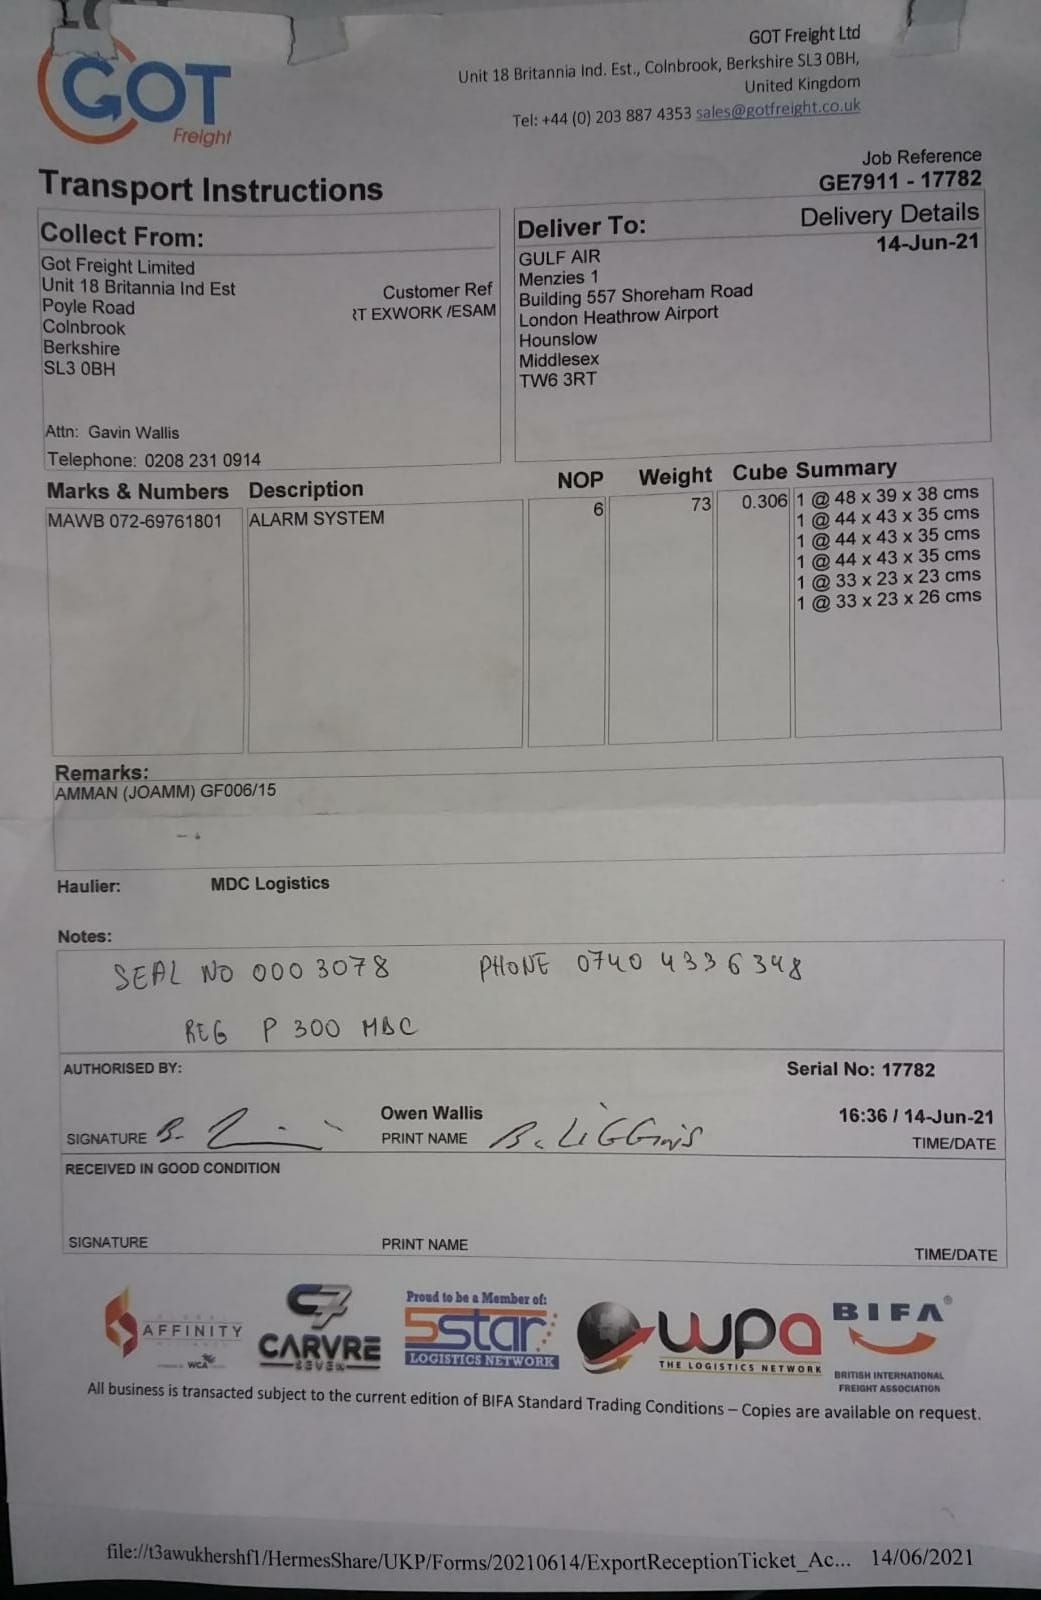 GOT
Freight
GOT Freight Ltd
Unit 18 Britannia Ind. Est., Colnbrook, Berkshire SL3 0BH,
United Kingdom
Tel: +44 (0) 203 887 4353 sales@gotfreight.co.uk
Job Reference
GE7911 - 17782
Transport Instructions
Collect From:
Got Freight Limited
Unit 18 Britannia Ind Est
Poyle Road
Colnbrook
Berkshire
SL3 0BH
Customer Ref
RT EXWORK /ESAM
Attn: Gavin Wallis
Telephone: 0208 231 0914
Deliver To:
Delivery Details
14-Jun-21
GULF AIR
Menzies 1
Building 557 Shoreham Road
London Heathrow Airport
Hounslow
Middlesex
TW6 3RT
Marks & Numbers Description NOP Weight Cube Summary
MAWB 072-69761801 ALARM SYSTEM 6 73 0.306 1 @ 48 x 39 x 38 cms
1 @ 44 x 43 x 35 cms
1 @ 44 x 43 x 35 cms
1 @ 44 x 43 x 35 cms
1 @ 33 x 23 x 23 cms
1 @ 33 x 23 x 26 cms
Remarks:
AMMAN (JOAMM) GF006/15
Haulier: MDC Logistics
Notes:
SEAL NO 0003078 PHONE 0740 4336348
REG P 300 MDC
AUTHORISED BY:
Serial No: 17782
Owen Wallis
16:36 / 14-Jun-21
SIGNATURE B. PRINT NAME B. LIGGINS
TIME/DATE
RECEIVED IN GOOD CONDITION
SIGNATURE PRINT NAME TIME/DATE
AFFINITY
WCA
C7
CARVRE
SEVEN
Proud to be a Member of:
5star
LOGISTICS NETWORK
wpa
THE LOGISTICS NETWORK
BIFA®
BRITISH INTERNATIONAL
FREIGHT ASSOCIATION
All business is transacted subject to the current edition of BIFA Standard Trading Conditions – Copies are available on request.
file://t3awukhershf1/HermesShare/UKP/Forms/20210614/ExportReceptionTicket_Ac... 14/06/2021